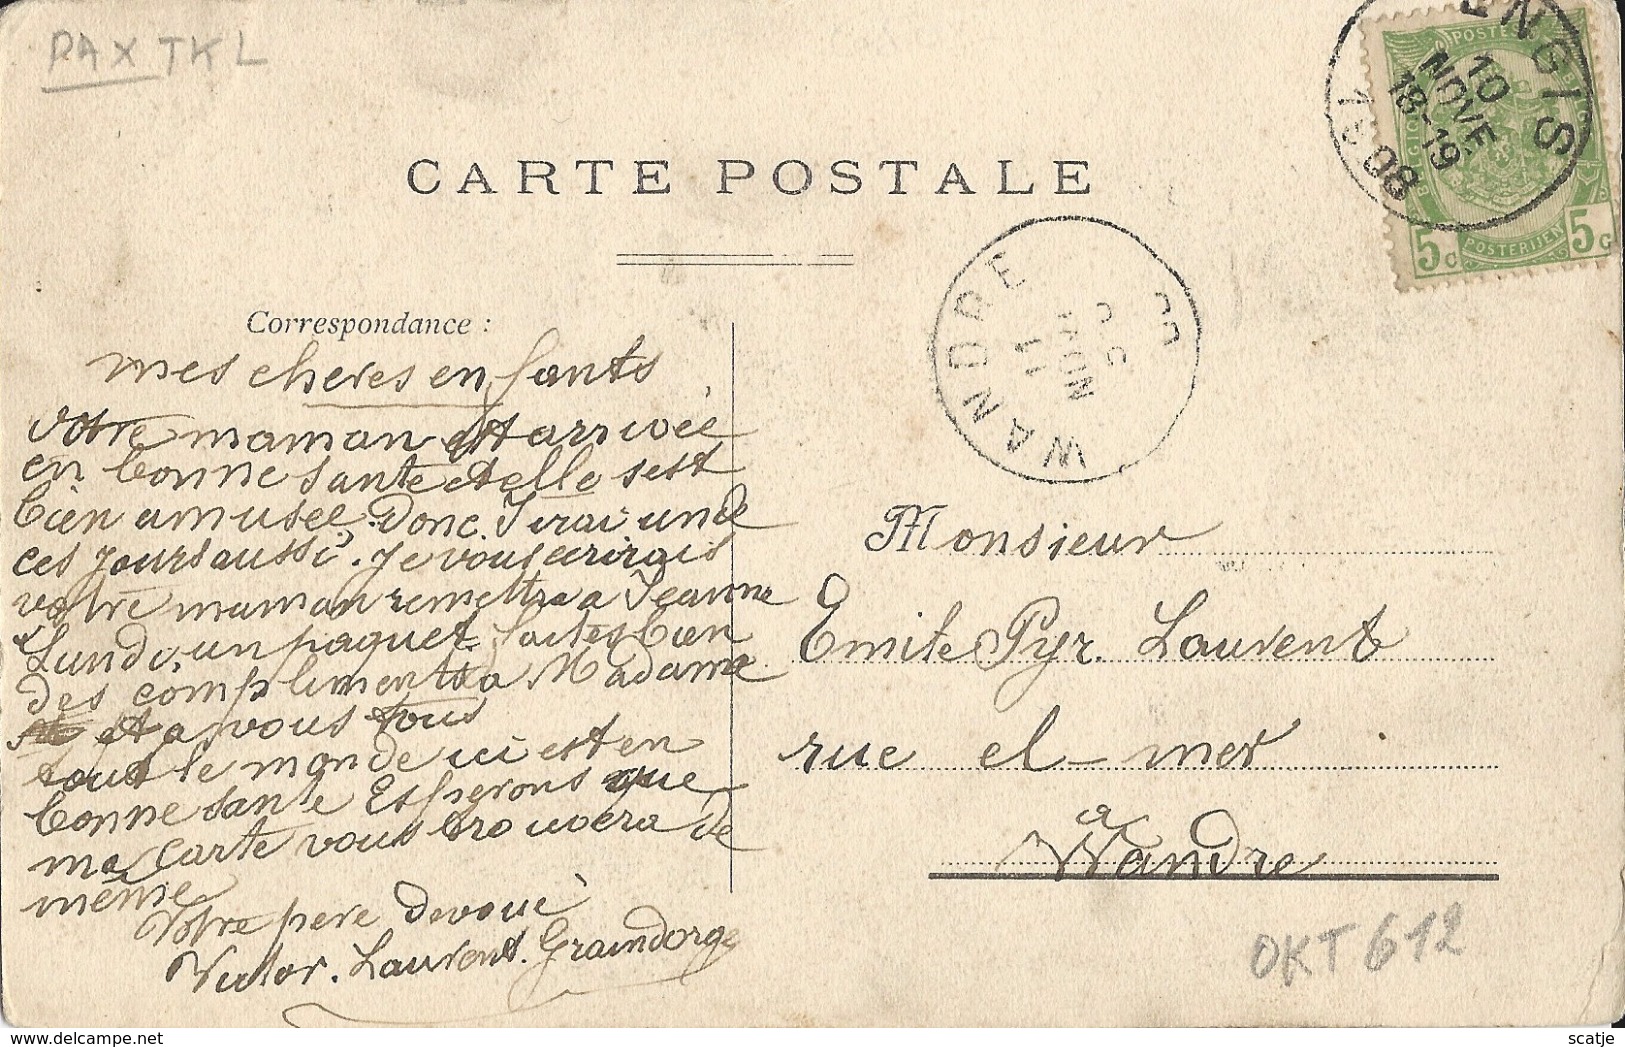 PAX TKL
ENGIS
10
NOVE
18-19
08
POSTES
POSTERIJEN
5c 5c
CARTE POSTALE
WANDRE
11
NOV
Correspondance :
mes cheres enfants
votre maman est arrivée
en bonne sante et elle sest
bien amusee. Donc J irai un de
ces jours aussi. je vous ecrirais
votre maman remettra a Jeanne
Lundi, un paquet. faites bien
des compliments a Madame
et a vous tous
tout le monde ici est en
bonne sante Esperons que
ma carte vous trouvera de
même
Votre pere devoué
Victor. Laurent. Graindorge
Monsieur
Emile Pyr. Laurent
rue el-mer
a
Wandre
OKT 612
delcampe.net
scatje